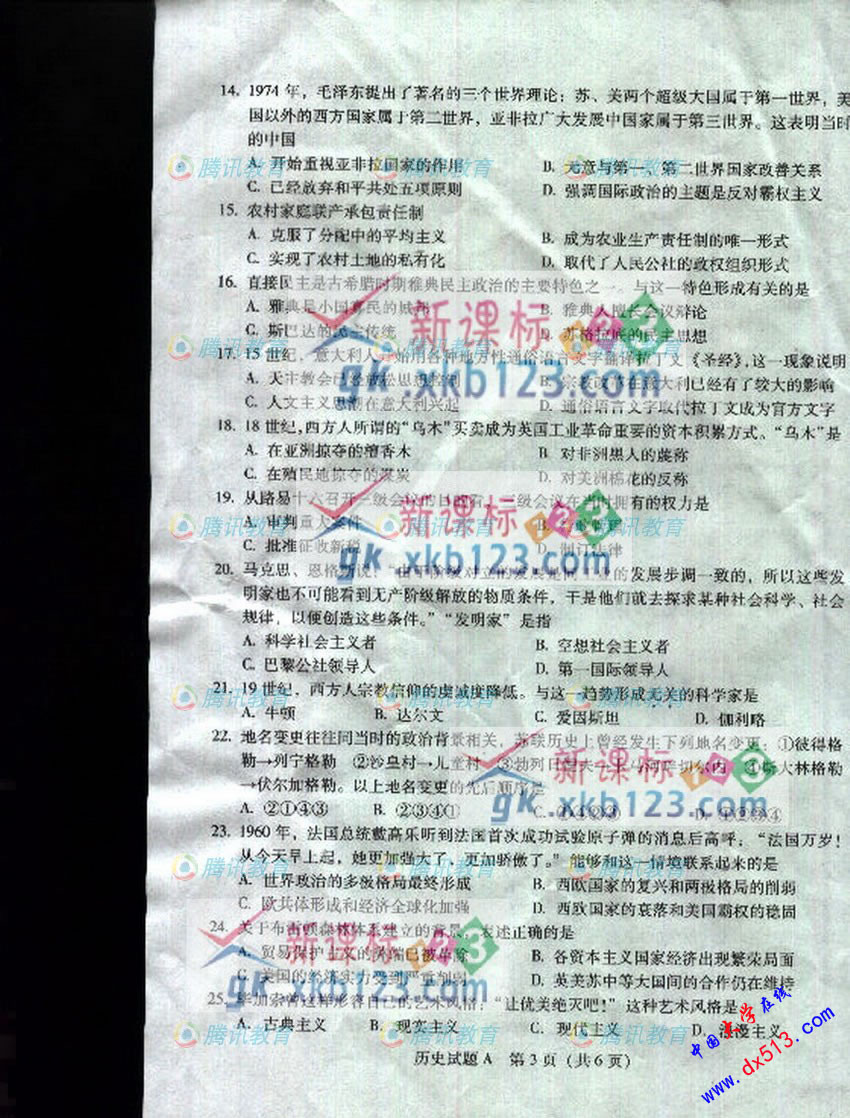 14. 1974年，毛泽东提出了著名的三个世界理论：苏、美两个超级大国属于第一世界，美
国以外的西方国家属于第二世界，亚非拉广大发展中国家属于第三世界。这表明当时
的中国
A. 开始重视亚非拉国家的作用 B. 无意与第一、第二世界国家改善关系
C. 已经放弃和平共处五项原则 D. 强调国际政治的主题是反对霸权主义
15. 农村家庭联产承包责任制
A. 克服了分配中的平均主义 B. 成为农业生产责任制的唯一形式
C. 实现了农村土地的私有化 D. 取代了人民公社的政权组织形式
16. 直接民主是古希腊时期雅典民主政治的主要特色之一。与这一特色形成有关的是
A. 雅典是小国寡民的城邦 B. 雅典人擅长会议辩论
C. 斯巴达的民主传统 D. 苏格拉底的民主思想
17. 15世纪，意大利人开始用各种地方性通俗语言文字翻译拉丁文《圣经》，这一现象说明
A. 天主教会已经放松思想控制 B. 宗教改革在意大利已经有了较大的影响
C. 人文主义思潮在意大利兴起 D. 通俗语言文字取代拉丁文成为官方文字
18. 18世纪，西方人所谓的“乌木”买卖成为英国工业革命重要的资本积累方式。“乌木”是
A. 在亚洲掠夺的檀香木 B. 对非洲黑人的蔑称
C. 在殖民地掠夺的煤炭 D. 对美洲棉花的反称
19. 从路易十六召开三级会议的目的看，三级会议在当时拥有的权力是
A. 审判重大案件
C. 批准征收新税 D. 制订法律
20. 马克思、恩格斯说：“由于阶级对立的发展是同工业的发展步调一致的，所以这些发
明家也不可能看到无产阶级解放的物质条件，于是他们就去探求某种社会科学、社会
规律，以便创造这些条件。”“发明家”是指
A. 科学社会主义者 B. 空想社会主义者
C. 巴黎公社领导人 D. 第一国际领导人
21. 19世纪，西方人宗教信仰的虔诚度降低。与这一趋势形成无关的科学家是
A. 牛顿 B. 达尔文 C. 爱因斯坦 D. 伽利略
22. 地名变更往往同当时的政治背景相关，苏联历史上曾经发生下列地名变更：①彼得格
勒→列宁格勒 ②沙皇村→儿童村 ③勃列日涅夫→ ④斯大林格勒
→伏尔加格勒。以上地名变更的先后顺序是
A. ②①④③ B. ②③④① C. ①④②③ D. ①②③④
23. 1960年，法国总统戴高乐听到法国首次成功试验原子弹的消息后高呼：“法国万岁！
从今天早上起，她更加强大了，更加骄傲了。”能够和这一情境联系起来的是
A. 世界政治的多极格局最终形成 B. 西欧国家的复兴和两极格局的削弱
C. 欧共体形成和经济全球化加强 D. 西欧国家的衰落和美国霸权的稳固
24. 关于布雷顿森林体系建立的背景，表述正确的是
A. 贸易保护主义的弊端已被革除 B. 各资本主义国家经济出现繁荣局面
C. 美国的经济实力受到严重削弱 D. 英美苏中等大国间的合作仍在维持
25. 毕加索曾这样形容自己的艺术风格：“让优美绝灭吧！”这种艺术风格是
A. 古典主义 B. 现实主义 C. 现代主义 D. 浪漫主义
历史试题A 第3页（共6页）
腾讯教育
新课标123
gk.xkb123.com
中国美学在线
www.dx513.com